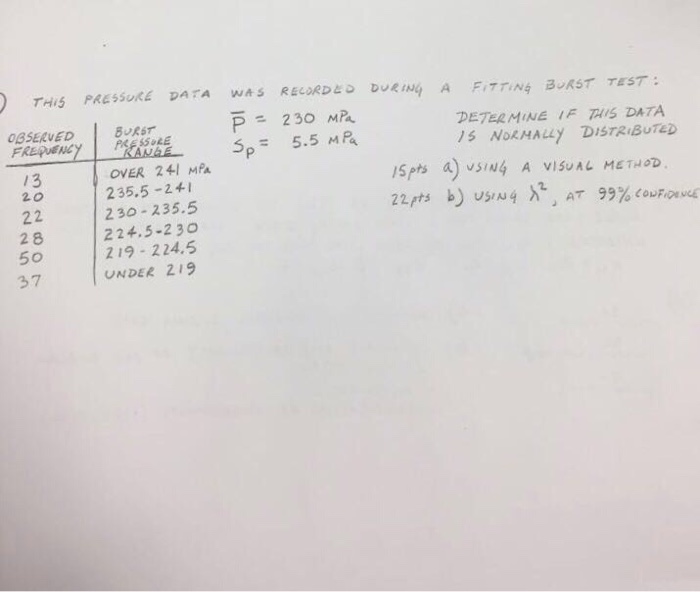 ) THIS PRESSURE DATA WAS RECORDED DURING A FITTING BURST TEST:
OBSERVED FREQUENCY | BURST PRESSURE RANGE
13 OVER 241 MPa
20 235.5-241
22 230-235.5
28 224.5-230
50 219-224.5
37 UNDER 219
P̅ = 230 MPa
Sp = 5.5 MPa
DETERMINE IF THIS DATA
IS NORMALLY DISTRIBUTED
15pts a) USING A VISUAL METHOD.
22pts b) USING λ², AT 99% CONFIDENCE